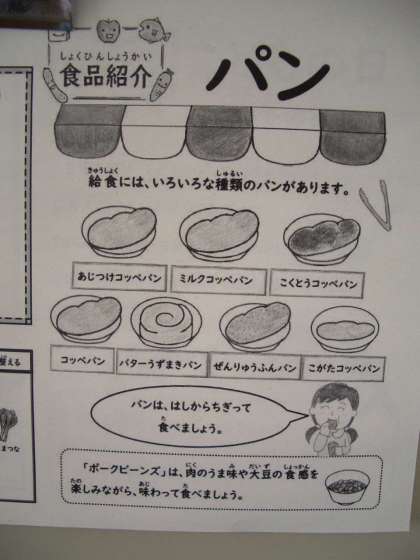 しょくひんしょうかい
食品紹介
パン
きゅうしょく しゅるい
給食には、いろいろな種類のパンがあります。
あじつけコッペパン
ミルクコッペパン
こくとうコッペパン
コッペパン
バターうずまきパン
ぜんりゅうふんパン
こがたコッペパン
パンは、はしからちぎって
た
食べましょう。
にく み だいず しょっかん
「ポークビーンズ」は、肉のうま味や大豆の食感を
たの あじ た
楽しみながら、味わって食べましょう。
整える
まつな